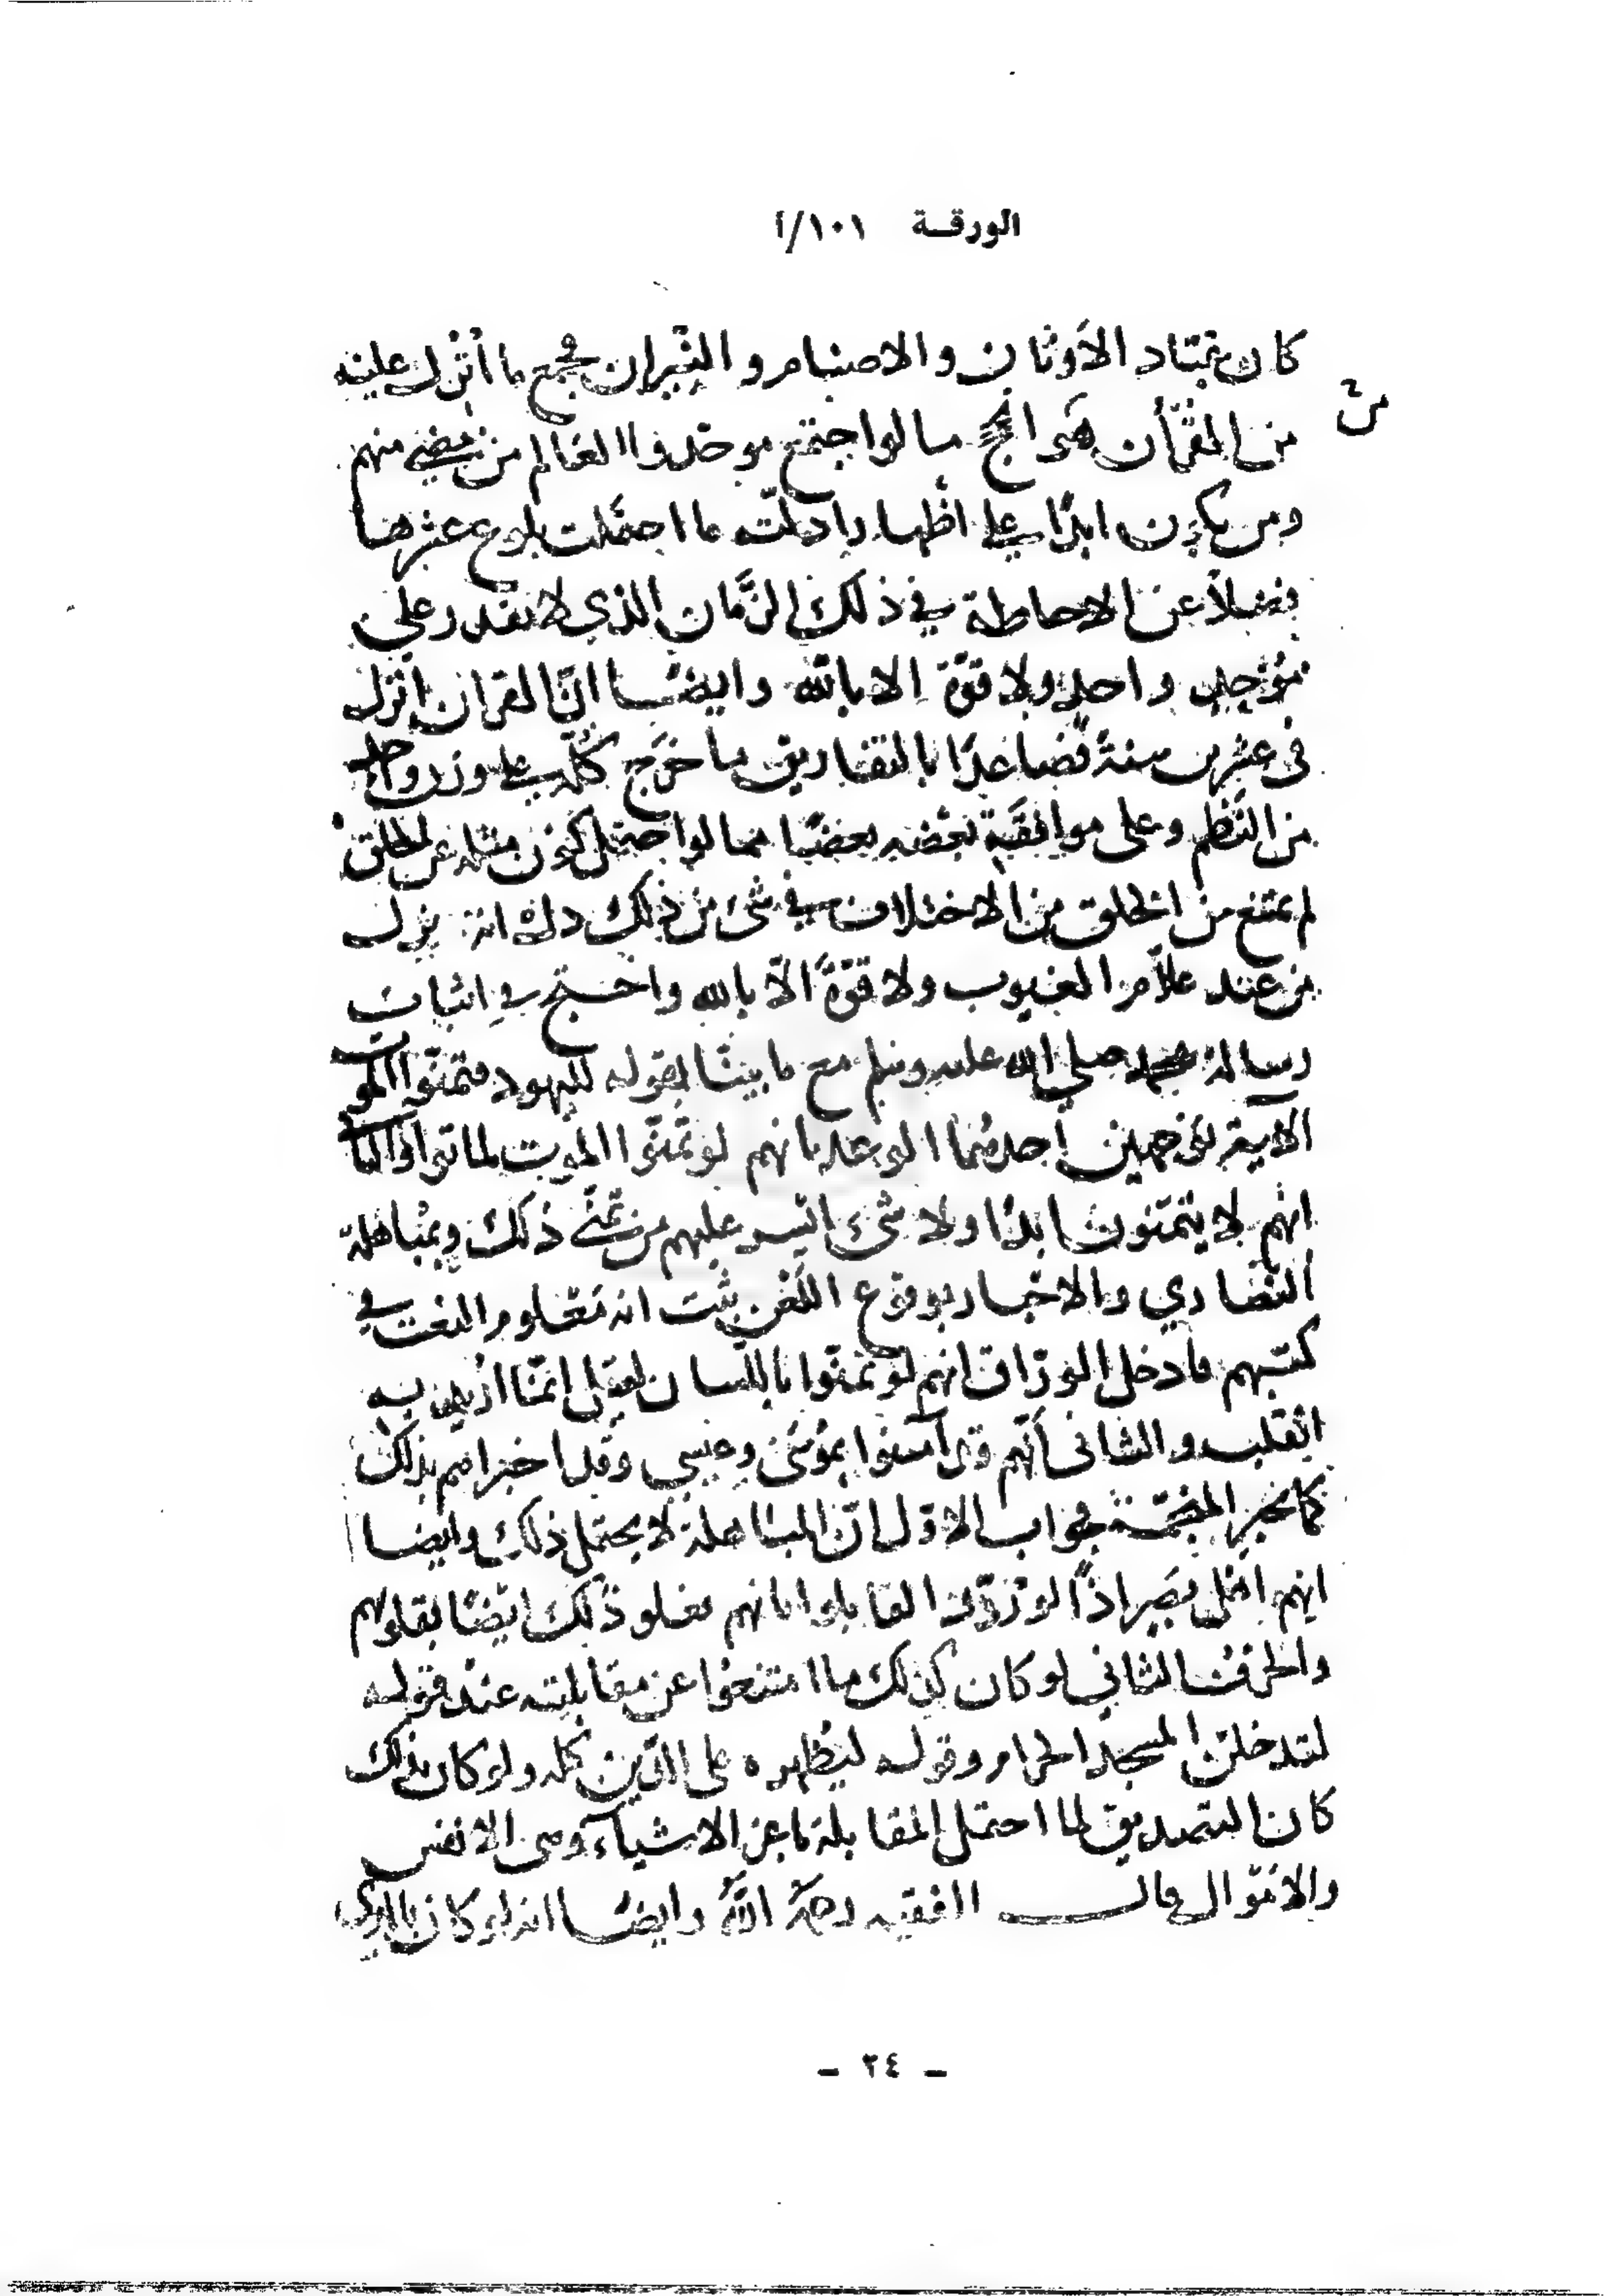 الورقة ١٠١/أ
كان بمتاد الأوثان والاصنام والنيران فجمع ما أنزل عليه
من القرآن من الحجج ما لو اجتمع موحدوا العالم من مضى منهم
ومن يكون ابدًا على اظهار ادلته ما احتملت بلوغ عشرها
فضلاً عن الاحاطة في ذلك الزَّمان الذي لا نقدر على
موحد واحد ولا قوّة الا بالله وايضا انَّ القران أنزل
فى عشرين سنة فصاعدًا بالتفاريق ما خرَج كلّه على وزن واحد
من النَّظم وعلى موافقة بعضه بعضًا مما لو احتمل كون مثله عن الخلق
لم يمتنع من الخلق من الاختلاف في شئ من ذلك دلّ انه نزل
من عند علاّم الغيوب ولا قوّة الاّ بالله واحتج في اثبات
رسالة محمد صلى الله عليه وسلم مع ما بينّا بقوله لليهود فتمنّوا الموت
الآية لوجهين احدهما الوعد بانهم لو تمنّوا الموت لماتوا والثا
انهم لا يتمنون ابدًا ولا شئ ايسر عليهم من تمنّي ذلك وبمباهلة
النصاري والاخبار بوقوع اللعن ثبت انه معلوم النعت في
كتبهم فادخل الورّاق انهم لو تمنّوا باللسان لقيل انمّا أريد به
القلب والثانى أنّهم قد آمنوا بموسى وعيسى وقد اخبراهم بذلك
كما يخبر المنجّمة فجواب الاوّل انّ المباهلة لا يحتمل ذلك وايضا
انهم
والحرف الثاني لو كان كذلك ما امتنعوا عن مقابلته عند قوله
لتدخلنّ المسجد الحرام وقوله ليظهره على الدّين كلّه ولو كان بذلك
كان التصديق لما احتمل المقابلة باعز الاشياء وهى الانفس
والاموال قال الفقيه رحمه اللهُ وايضا انه لو كان
ـ ٢٤ ـ